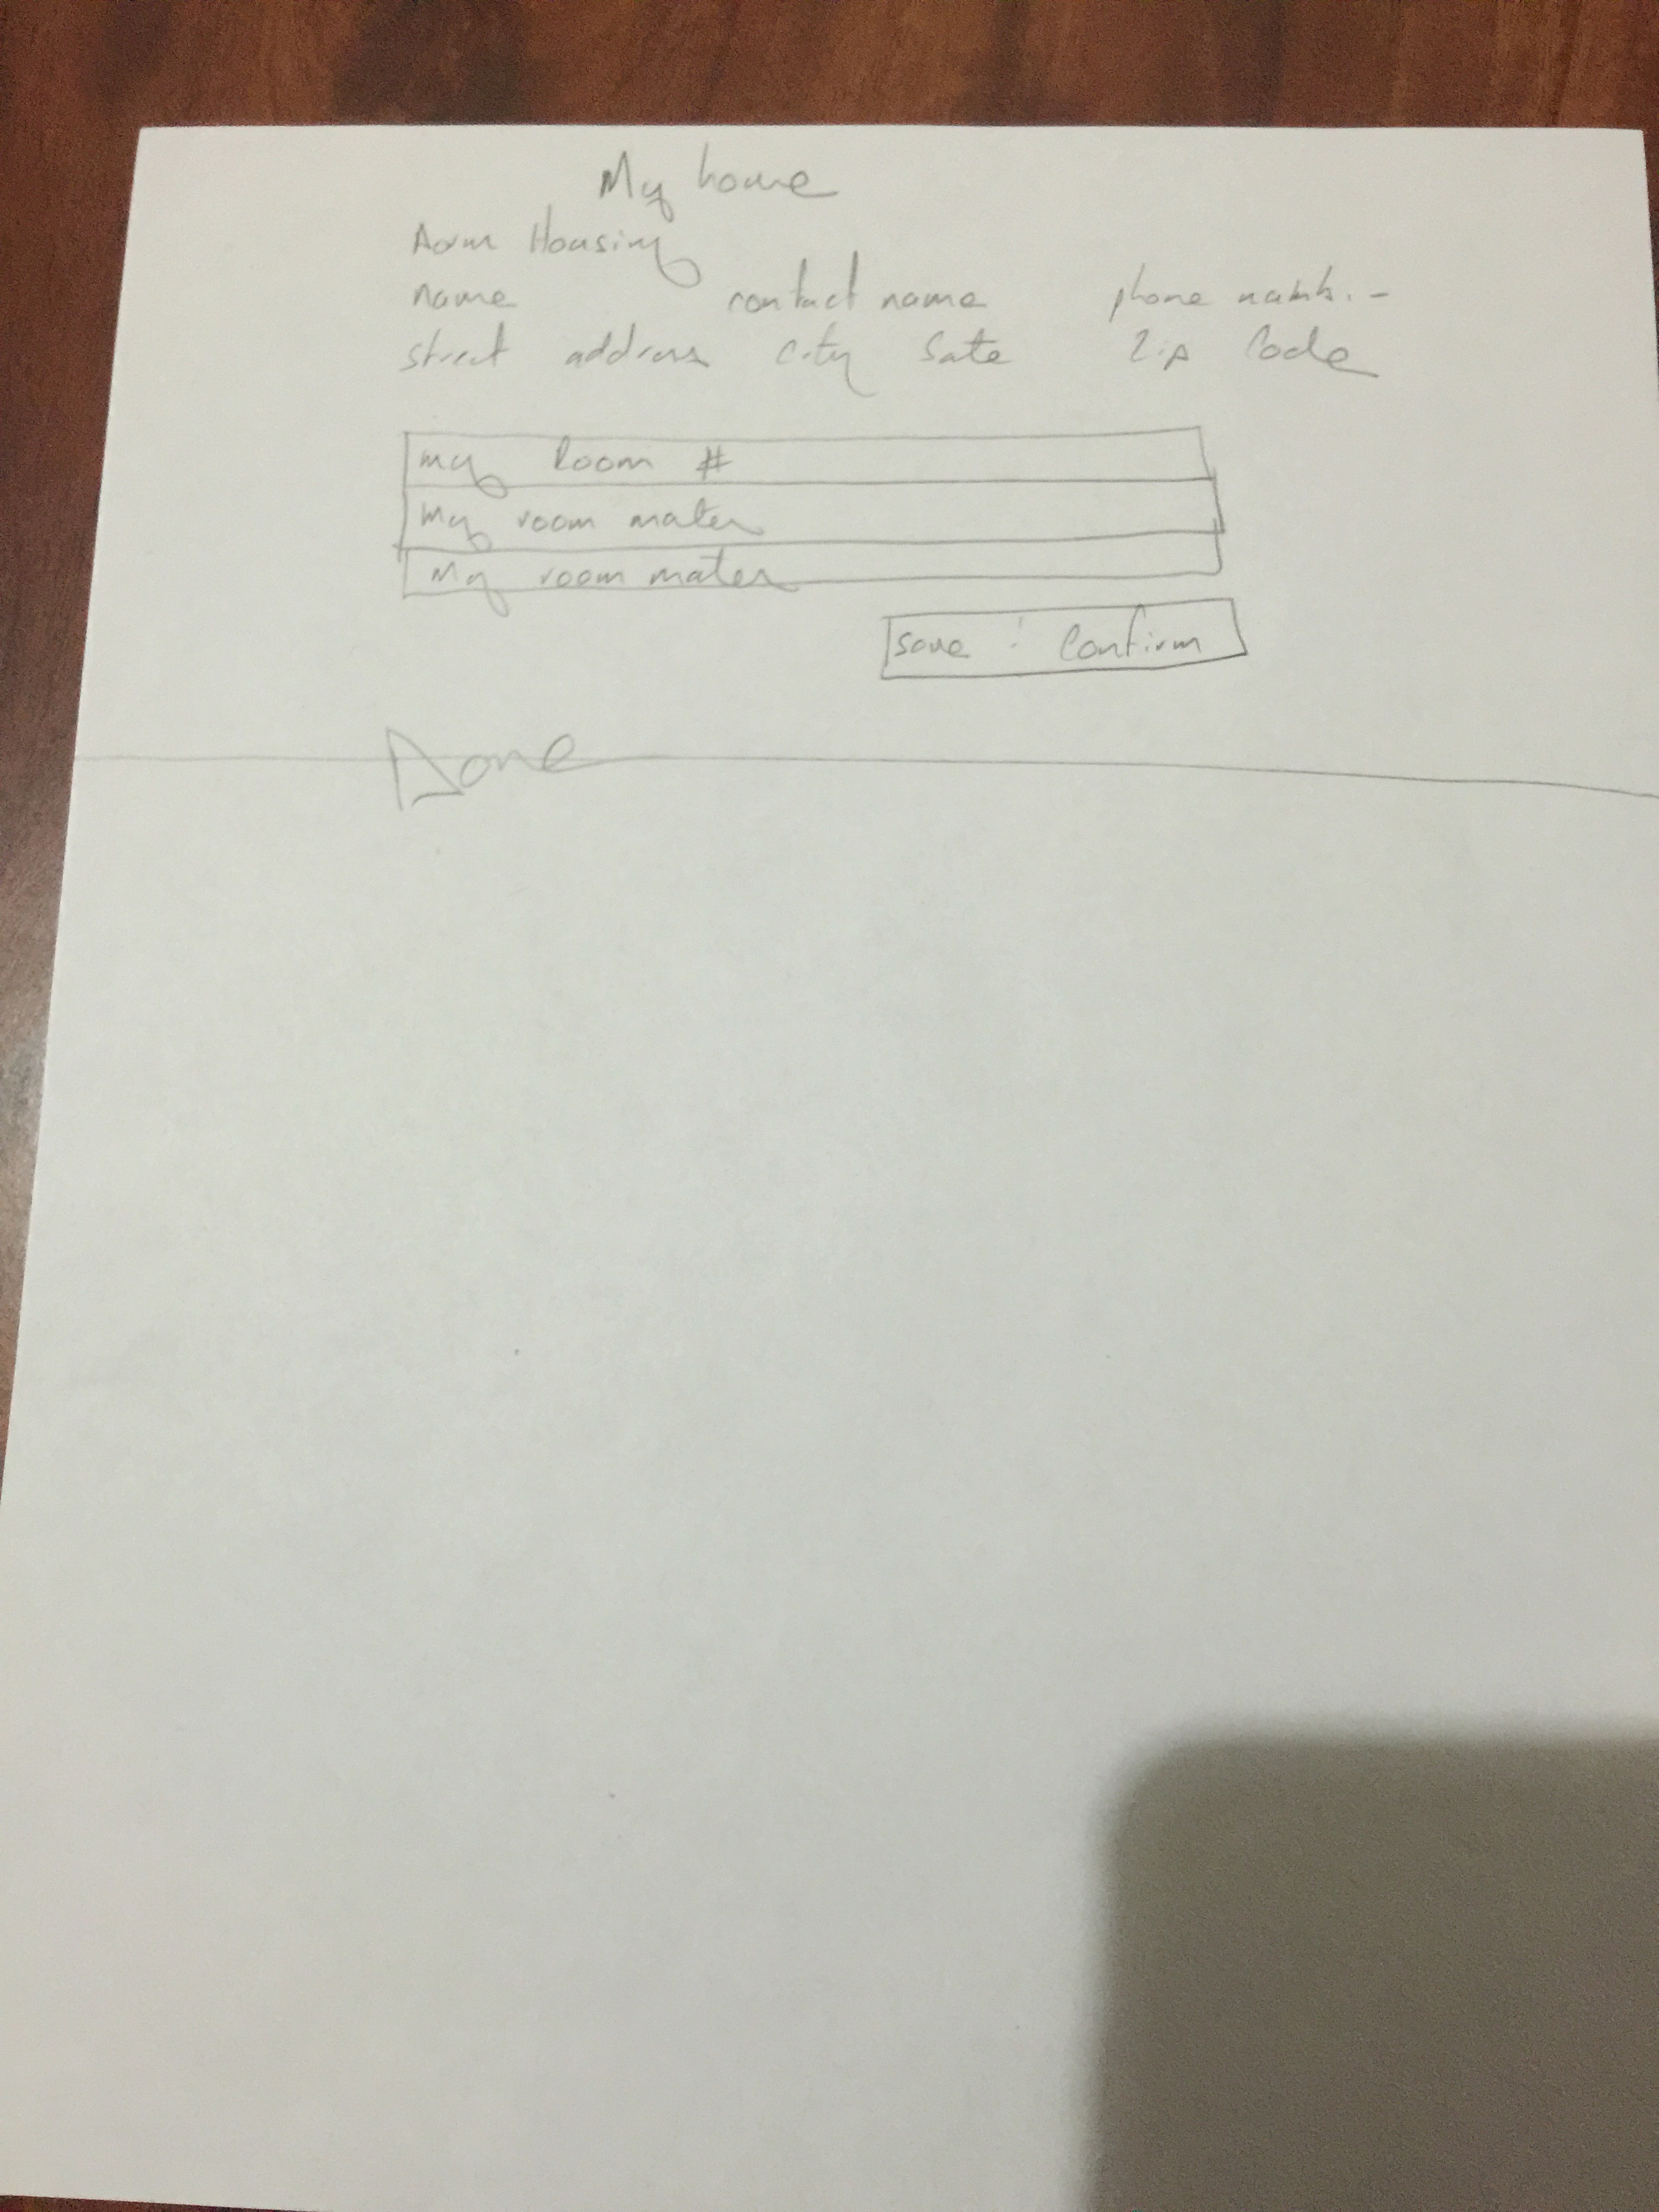 My home
Dorm Housing
name contact name phone numb. -
street address city Sate Zip Code
my Room #
My room mates
My room mates
save : Confirm
Done